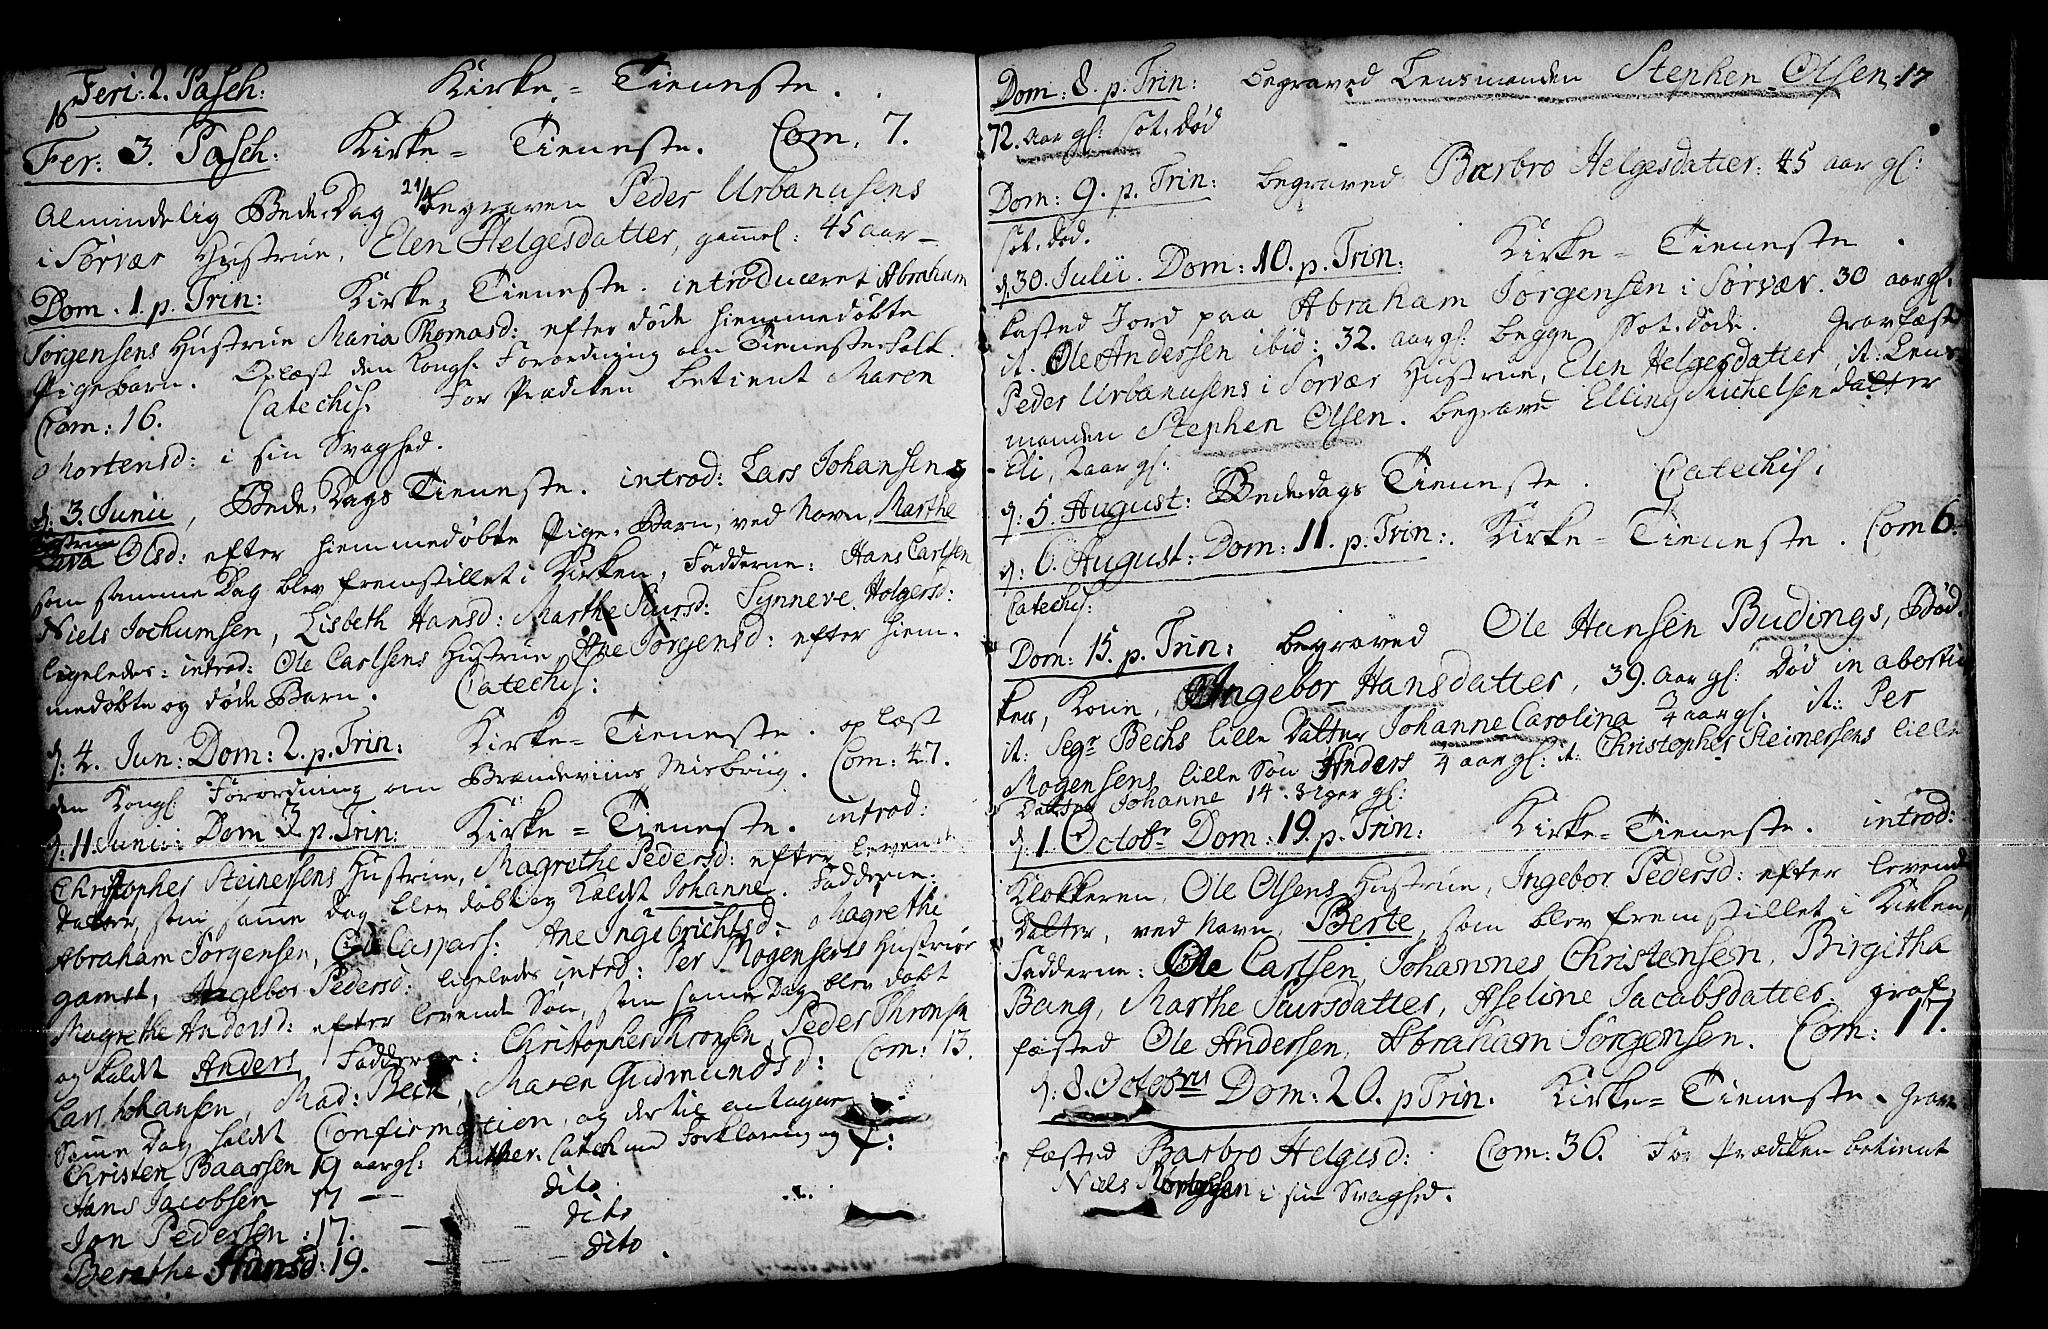 16
Feri: 2. Pasch: Kirke = Tieneste.
Fer: 3. Pasch: Kirke = Tieneste. Com. 7.
Almindelig Bede-Dag 21/4 begraven Peder Urbanusens
i Sørvær Hustrue, Elen Helgesdatter, gammel: 45 aar
Dom. 1. p. Trin: Kirke = Tieneste. introduceret Abraham
Jørgensens Hustrue Maria Thomasd: efter døde hiemmedøbte
Pigebarn. Oplæst den Kongl: Forordning om Tieneste-Folk.
Com: 16. Catechis. For Prædiken betient Maren
Mortensd: i sin Svaghed.
d: 3. Junii, Bede-Dags Tieneste. introd: Lars Johansens
Hustrue Olsd: efter hiemmedøbte Pige-Barn, ved Navn, Marthe
som samme Dag blev fremstillet i Kirken, Fadderne: Hans Carlsen
Niels Jochumsen, Lisbeth Hansd: Marthe Siursd: Synneve Holgersd:
ligeledes: introd: Ole Carlsens Hustrue, Ane Jørgensd: efter hiem-
medøbte og døde Barn. Catechis:
d: 4. Jun: Dom: 2. p. Trin: Kirke = Tieneste. oplæst
den Kongl: Forordning om Brændeviins Misbrug. Com: 47.
d: 11. Junii: Dom 3. p. Trin: Kirke = Tieneste. introd:
Christopher Steinersens Hustrue, Magrethe Pedersd: efter levende
Datter, som samme Dag blev døbt og kaldt Johanne. Fadderne:
Abraham Jørgensen, Ole Caspars: Ane Ingebrichtsd: Magrethe
gamst, Angebor Pedersd: ligeledes introd: Per Mogensens Hustrue
Magrethe Andersd: efter levende Søn, som samme Dag blev døbt
og kaldt Anders, Fadderne: Christopher Thronsen, Peder Thronsen
Lars Johansen, Mad: Beck, Maren Gudmundsd: Com: 13.
Samme Dag holdt Confirmation, og dertil antagen
Christen Baarsen 19 aar gl: Luther: Catech med Forklaring og
Hans Jacobsen 17 — dito
Jon Pedersen: 17. — dito
Berethe Hansd: 19. — dito.
17
Dom: 8. p. Trin: begraved Lensmanden Stephen Olsen
72. aar gl: Sot-død
Dom: 9. p. Trin: begraved Barbro Helgesdatter: 45 aar gl:
Sot-død.
d: 30. Julii. Dom: 10. p. Trin: Kirke = Tieneste.
kasted Jord paa Abraham Jørgensen i Sørvær. 30 aar gl.
it. Ole Andersen ibid: 32. aar gl: begge Sot-døde. Gravfæsted
Peder Urbanusens i Sørvær Hustrue, Elen Helgesdatter, it: Lens-
manden Stephen Olsen. begraved Elling Michelsen datter
Eli, 2 aar gl:
d: 5. August: Bededags Tieneste. Catechis.
d: 6. August: Dom: 11. p. Trin: Kirke = Tieneste. Com 6.
Catechis:
Dom: 15. p. Trin: begraved Ole Hansen Budings, Bød-
ker, Kone, Ingebor Hansdatter, 39. aar gl: død in abortu
it: Segr Bechs lille Datter Johanne Carolina 3/4 aar gl: it: Per
Mogensens lille Søn Anders 1/4 aar gl: it: Christopher Steinersens lille
Datter Johanne 14. Uger gl:
d: 1. Octobr Dom: 19. p. Trin: Kirke = Tieneste. introd:
Klokkeren, Ole Olsens Hustrue, Ingebor Pedersd: efter levende
Datter, ved Navn, Berte, som blev fremstillet i Kirken,
Fadderne: Ole Carlsen, Johannes Christensen, Birgitha
Bang, Marthe Siursdatter, Aseline Jacobsdatter. Graf-
fæsted Ole Andersen, Abraham Jørgensen. Com: 17.
d: 8. Octobris Dom: 20. p Trin. Kirke = Tieneste. Grav-
fæsted Barbro Helgesd: Com: 36. For Prædiken betient
Niels i sin Svaghed.